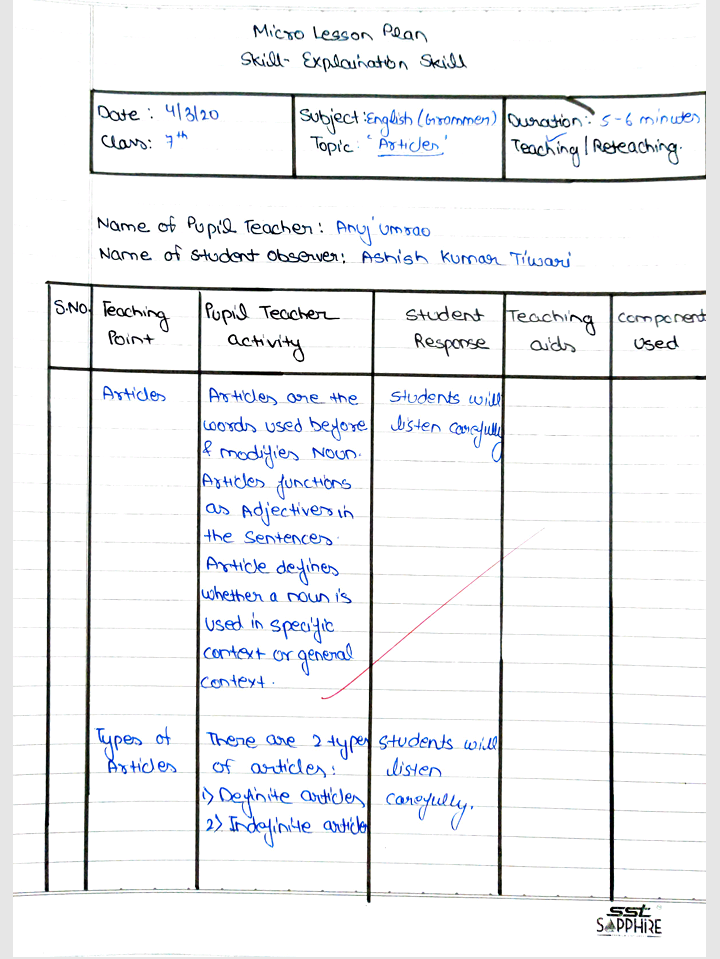 Micro Lesson Plan
Skill- Explaination Skill
Date : 4/3/20
Class: 7th
Subject: English (Grammer)
Topic: 'Articles'
Duration: 5-6 minutes
Teaching / Reteaching.
Name of Pupil Teacher: Anuj umrao
Name of student observer: Ashish Kumar Tiwari
S.NO. Teaching Point
Pupil Teacher activity
Student Response
Teaching aids
component used
Articles
Articles are the
words used before
& modifies Noun.
Articles functions
as Adjectives in
the Sentences.
Article defines
whether a noun is
used in specific
context or general
context.
students will
listen carefully
Types of
Articles
There are 2 types
of articles:
1) Definite articles
2) Indefinite article
students will
listen
carefully.
sst
SAPPHIRE